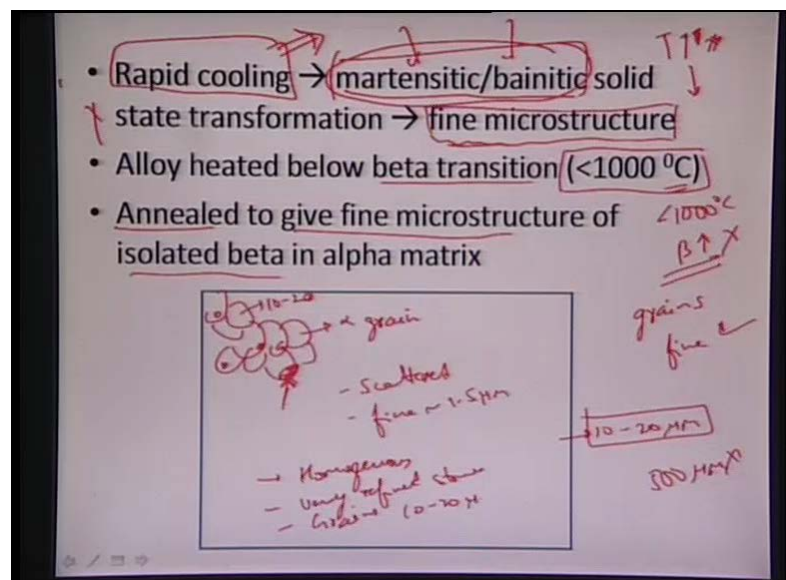 • Rapid cooling → martensitic/bainitic solid
state transformation → fine microstructure
• Alloy heated below beta transition (<1000 ⁰C)
• Annealed to give fine microstructure of
isolated beta in alpha matrix
T↑
<1000°C
β↑ X
grains
fine
10-20 μm
500 μm X
10-20
α grain
- Scattered
- fine ~ 1.5 μm
→ Homogenous
- very refined
- Grains 10-20 μ